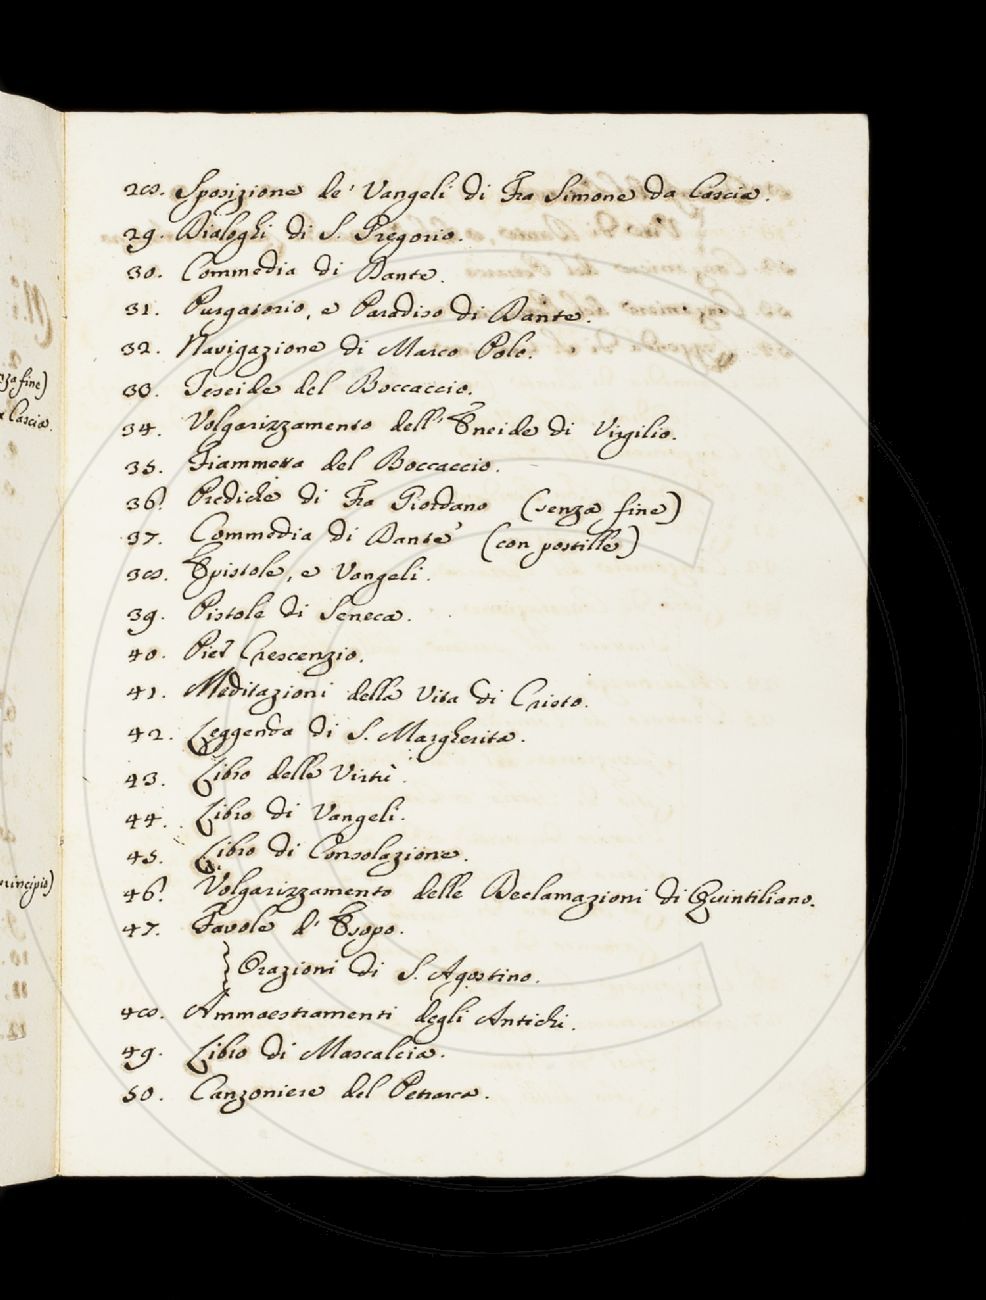 28. Sposizione de' Vangeli di Fra Simone da Cascia.
29. Dialoghi di S. Gregorio.
30. Commedia di Dante.
31. Purgatorio, e Paradiso di Dante.
32. Navigazione di Marco Polo.
33. Teseide del Boccaccio.
34. Volgarizzamento dell' Eneide di Virgilio.
35. Fiammetta del Boccaccio.
36. Prediche di Fra Giordano (senza fine)
37. Commedia di Dante (con postille)
38. Epistole, e Vangeli.
39. Pistole di Seneca.
40. Pier Crescenzio.
41. Meditazioni della Vita di Cristo.
42. Leggenda di S. Margherita.
43. Libro delle Virtù.
44. Libro di Vangeli.
45. Libro di Consolazione.
46. Volgarizzamento delle Declamazioni di Quintiliano.
47. Favole d' Esopo.
Orazioni di S. Agostino.
48. Ammaestramenti degli Antichi.
49. Libro di Mascalcia.
50. Canzoniere del Petrarca.